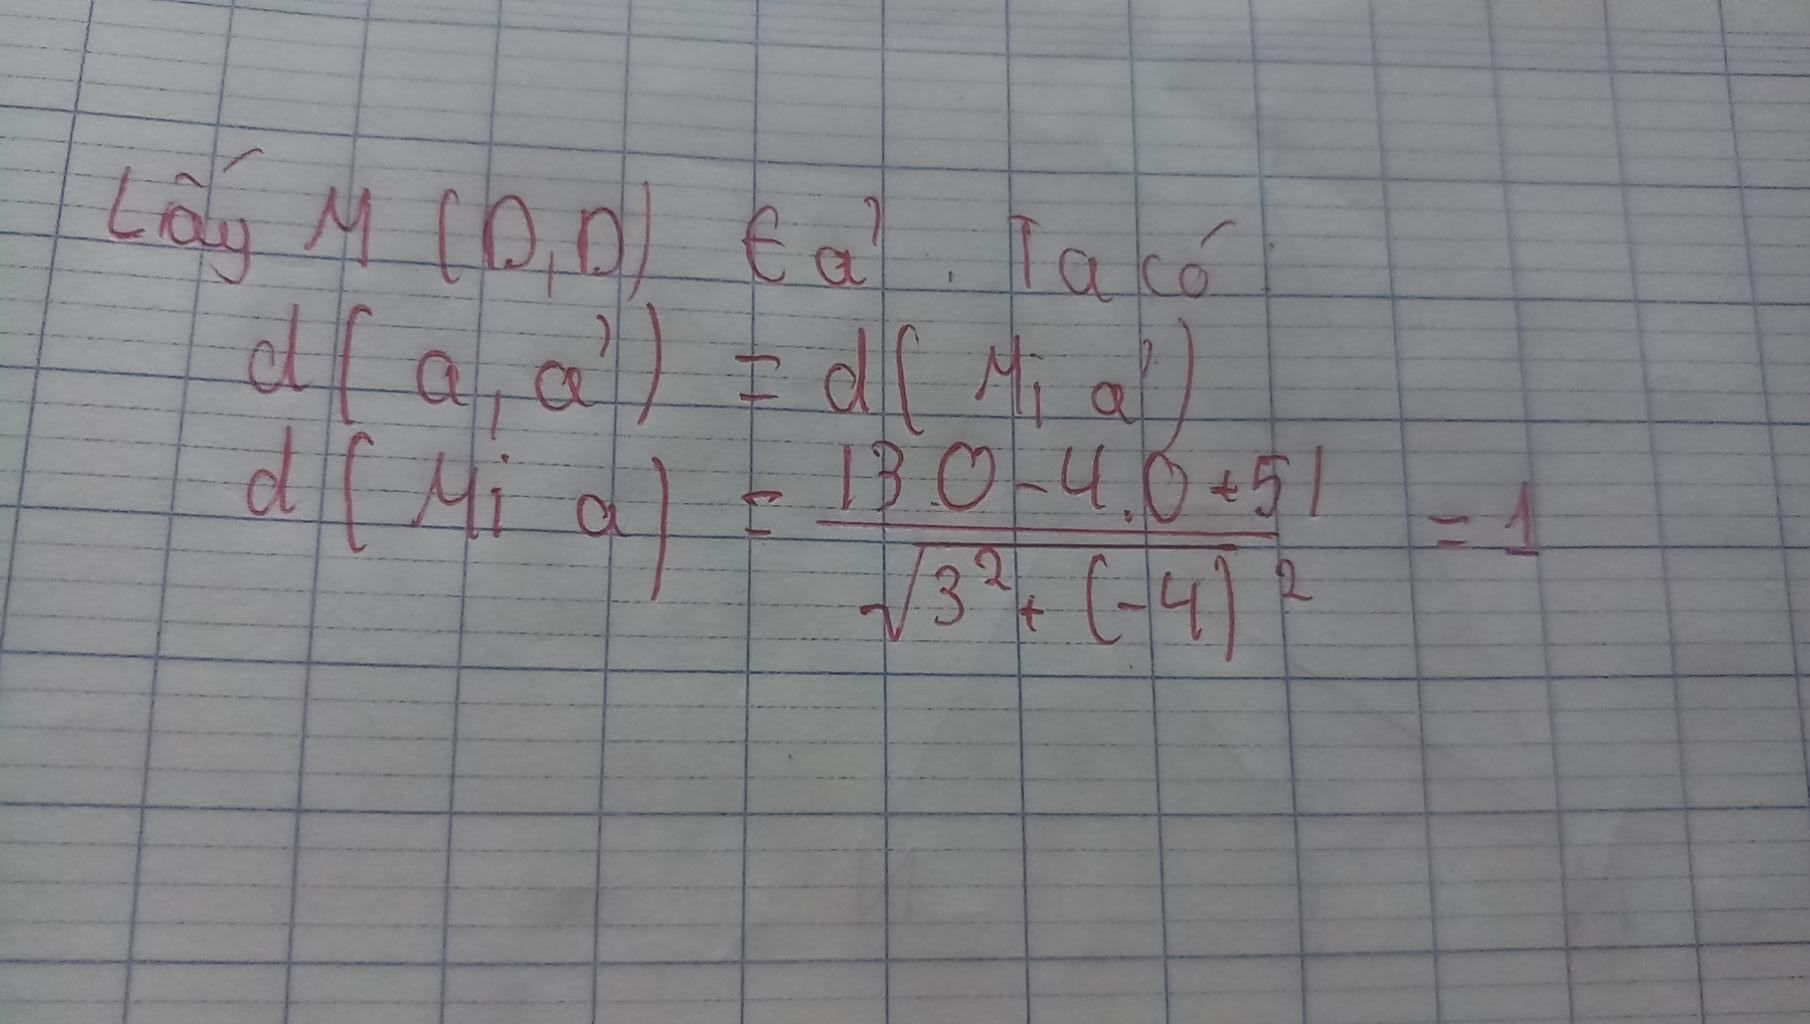 Lấy M (0,0) ∈ a'. Ta có:
d( a, a') = d( M, a')
d( M; a) = |3.0 - 4.0 + 5| / √3² + (-4)² = 1